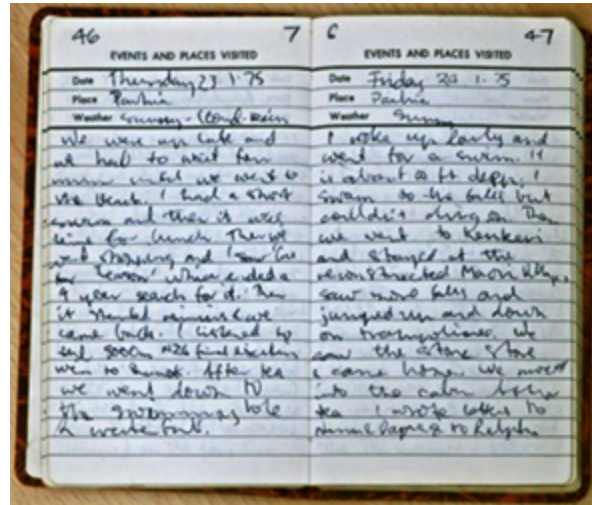 46 7
EVENTS AND PLACES VISITED
Date Thursday 23.1.75
Place Paihia
Weather Sunny - Cloud - Rain
We were up late and
we had to wait for
until we went to
the beach. I had a short
swim and then it was
time for lunch. Then we
went shopping and I saw
for which ended a
4 year search for it. Then
it started raining & we
came back. I listened to
After tea
we went down to
the swimming hole
&
6 47
EVENTS AND PLACES VISITED
Date Friday 24.1.75
Place Paihia
Weather Sunny
I woke up early and
went for a swim. It
is about ft deep. I
swam to the falls but
couldn't on. Then
we went to Kerikeri
and stayed at the
reconstructed Maori village,
saw more falls and
jumped up and down
on trampolines. We
saw the stone store
& came home. We moved
into the cabin
tea I wrote letters to
& to